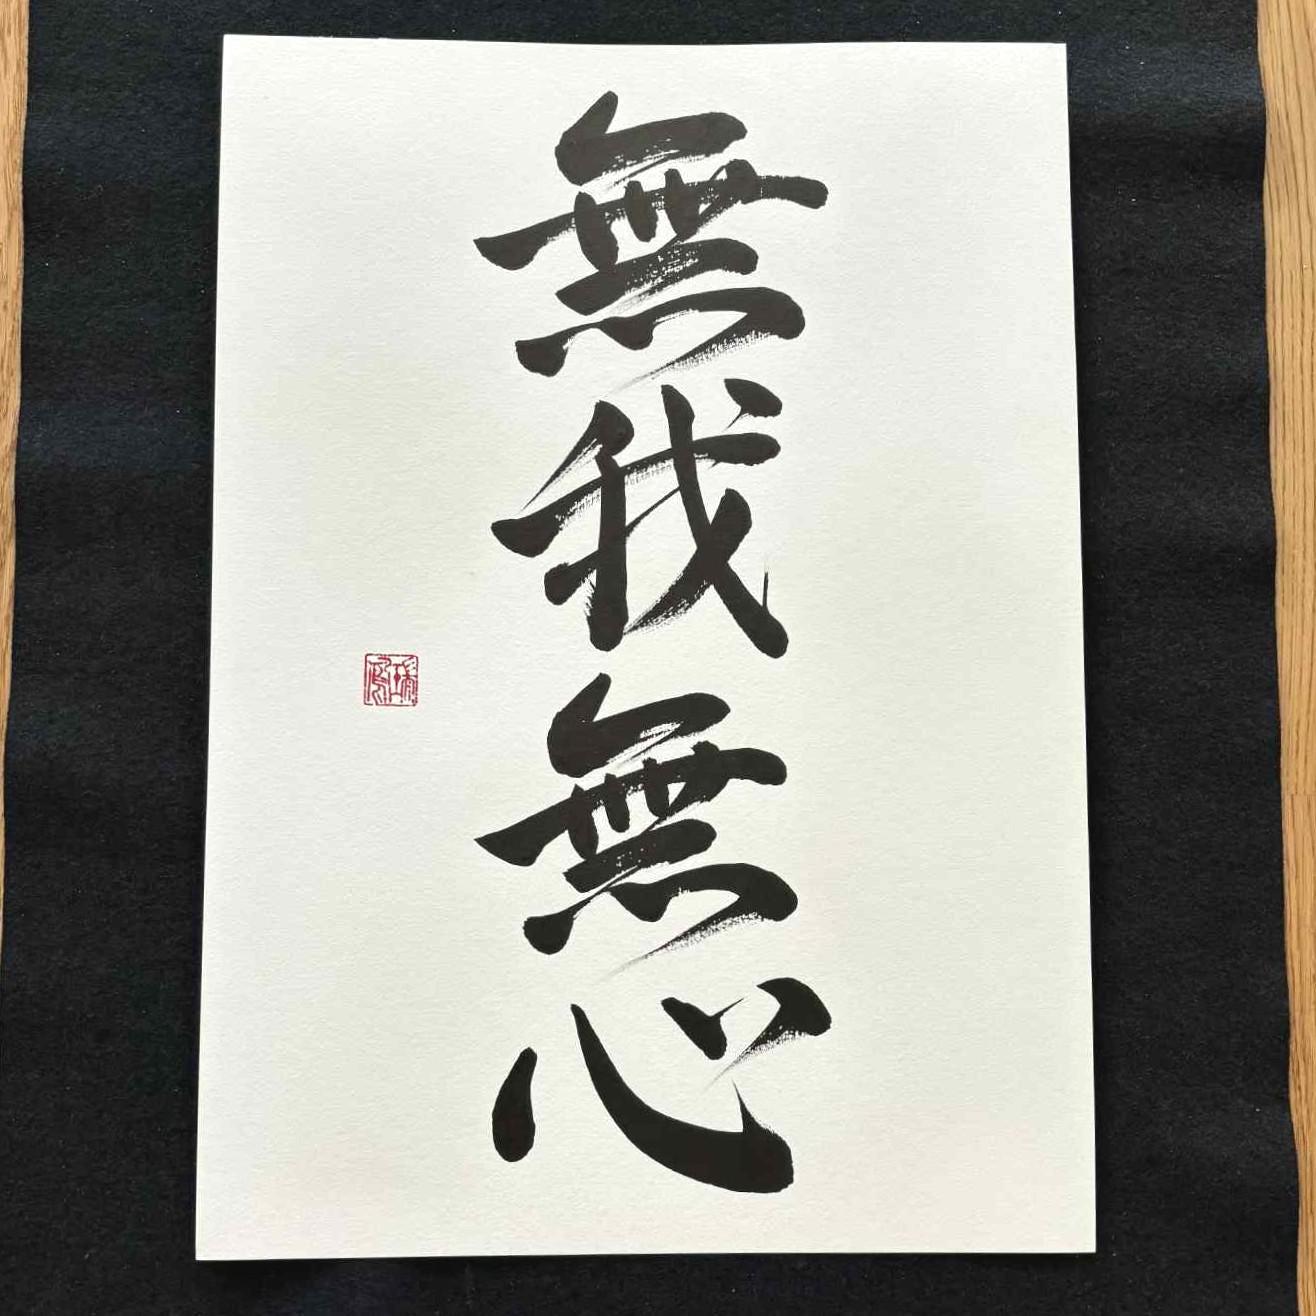 無我無心